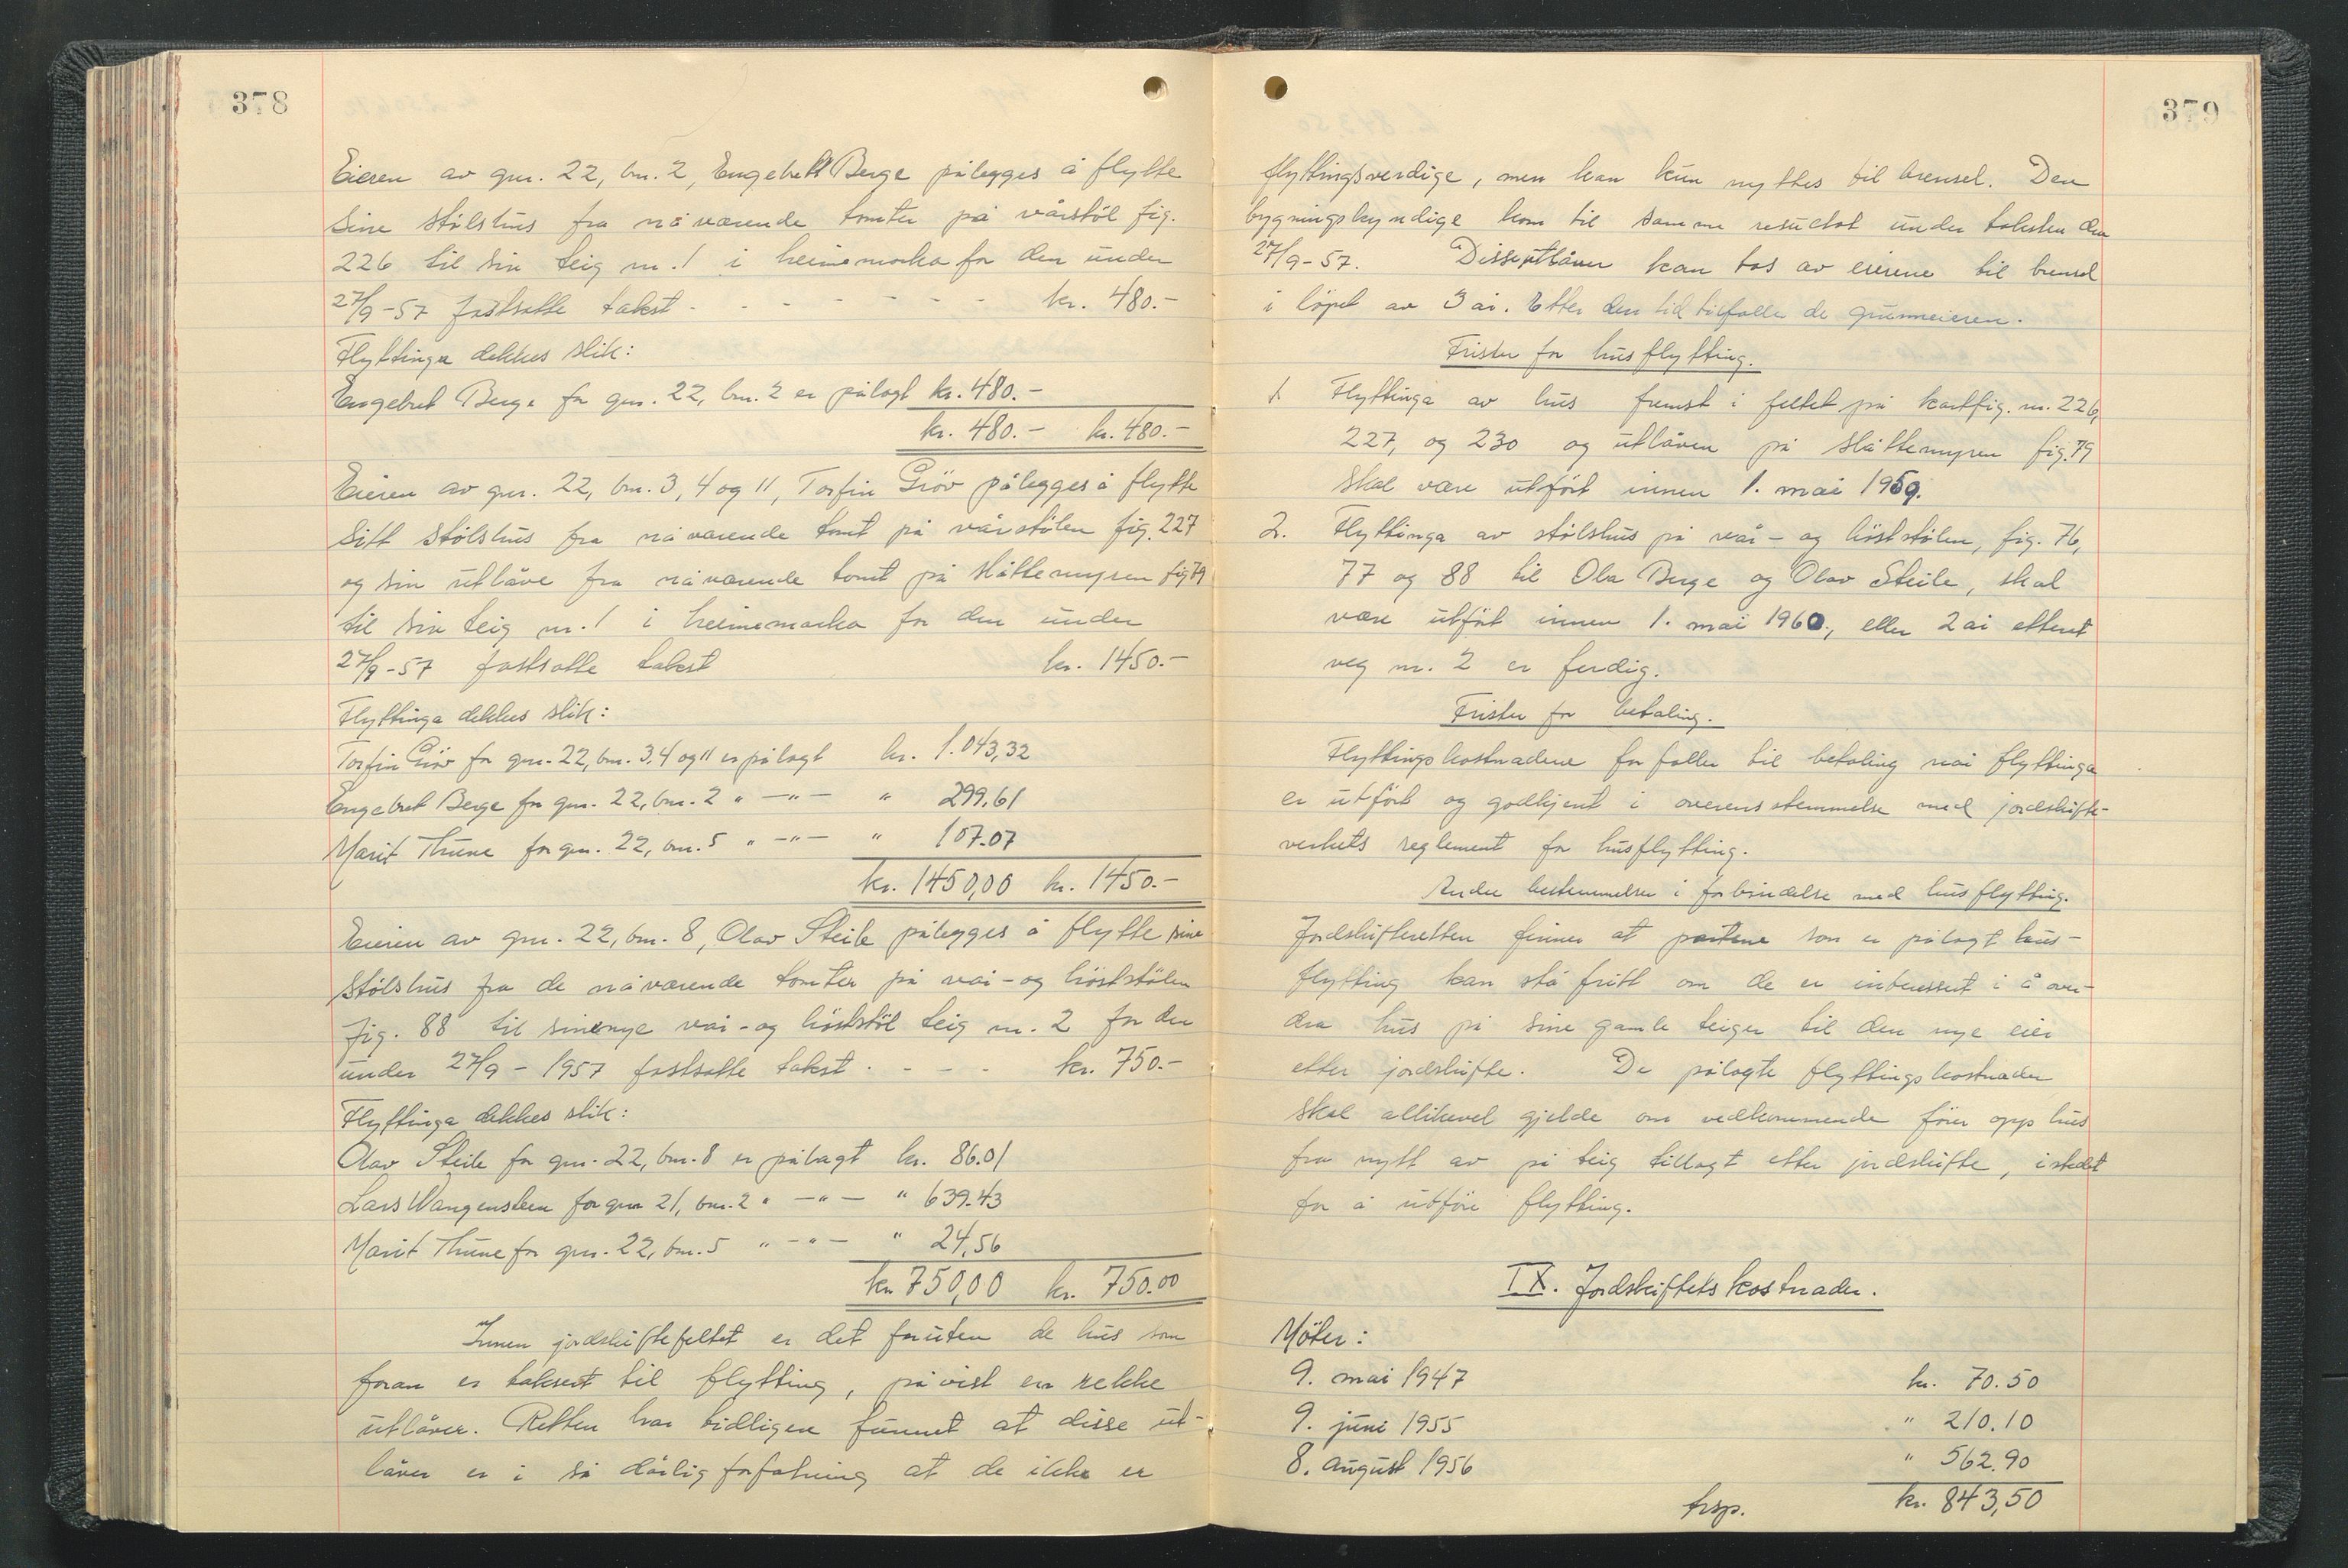 378
Eieren av gnr. 22, bnr. 2, Engebrett Berge pålegges å flytte
sine stølshus fra nåværende tomter på vårstøl fig.
226 til sin teig nr. 1 i heimemarka for den under
27/9-57 fastsatte takst - - - - - - - kr. 480.-
Flyttinga dekkes slik:
Engebret Berge for gnr. 22, bnr. 2 er pålagt kr. 480.-
kr. 480.- kr. 480.-
Eieren av gnr. 22, bnr. 3, 4 og 11, Torfin Gröv pålegges å flytte
sitt stølshus fra nåværende tomt på vårstølen fig. 227
og sin utlåve fra nåværende tomt på slåttemyren fig 79
til sin teig nr. 1 i heimemarka for den under
27/9-57 fastsatte takst kr. 1450.-
Flyttinga dekkes slik:
Torfin Gröv for gnr. 22, bnr. 3, 4 og 11 er pålagt kr. 1.043,32
Engebret Berge for gnr. 22, bnr. 2 " -"- " 299,61
Marit Thune for gnr. 22, bnr. 5 " -"- " 107.07
kr. 1450,00 kr. 1450.-
Eieren av gnr. 22, bnr. 8, Olav Steile pålegges å flytte sine
stølshus fra de nåværende tomter på vår- og höststölen
fig. 88 til sine nye vår- og höststöl teig nr. 2 for den
under 27/9 - 1957 fastsatte takst - - - - kr. 750.-
Flyttinga dekkes slik:
Olav Steile for gnr. 22, bnr. 8 er pålagt kr. 86.01
Lars Wangensteen for gnr 21, bnr. 2 " -"- " 639.43
Marit Thune for gnr. 22, bnr. 5 " -"- " 24,56
kr. 750,00 kr. 750.00
Innen jordskiftefeltet er det foruten de hus som
foran er taksert til flytting, påvist en rekke
utlåver. Retten har tidligere funnet at disse ut-
låver er i så dårlig forfatning at de ikke er
379
flyttingsverdige, men kan kun nyttes til brensel. Den
bygningskyndige kom til samme resultat under taksten den
27/9-57. Disse utlåver kan tas av eierene til brensel
i löpet av 3 år. Etter den tid tilfalle de grunneieren.
Frister for husflytting.
1. Flyttinga av hus fremst i feltet på kartfig. nr. 226,
227, og 230 og utlåven på slåttemyren fig. 79
skal være utfört innen 1. mai 1959.
2. Flyttinga av stølshus på vår- og höststölen, fig. 76,
77 og 88 til Ola Berge og Olav Steile, skal
være utfört innen 1. mai 1960, eller 2 år etteret
veg nr. 2 er ferdig.
Frister for betaling.
Flyttingskostnadene forfaller til betaling når flyttinga
er utfört og godkjent i overensstemmelse med jordskifte-
verkets reglement for husflytting.
Andre bestemmelser i forbindelse med husflytting.
Jordskifteretten finner at partene som er pålagt hus-
flytting kan stå fritt om de er interessert i å over-
dra hus på sine gamle teiger til den nye eier
etter jordskifte. De pålagte flyttingskostnader
skal allikevel gjelde om vedkommende förer opp hus
fra nytt av på teig tillagt etter jordskifte, istedet
for å utföre flytting.
IX. Jordskiftets kostnader.
Möter:
9. mai 1947 kr. 70.50
9. juni 1955 " 210.10
8. august 1956 " 562.90
trsp. kr. 843,50